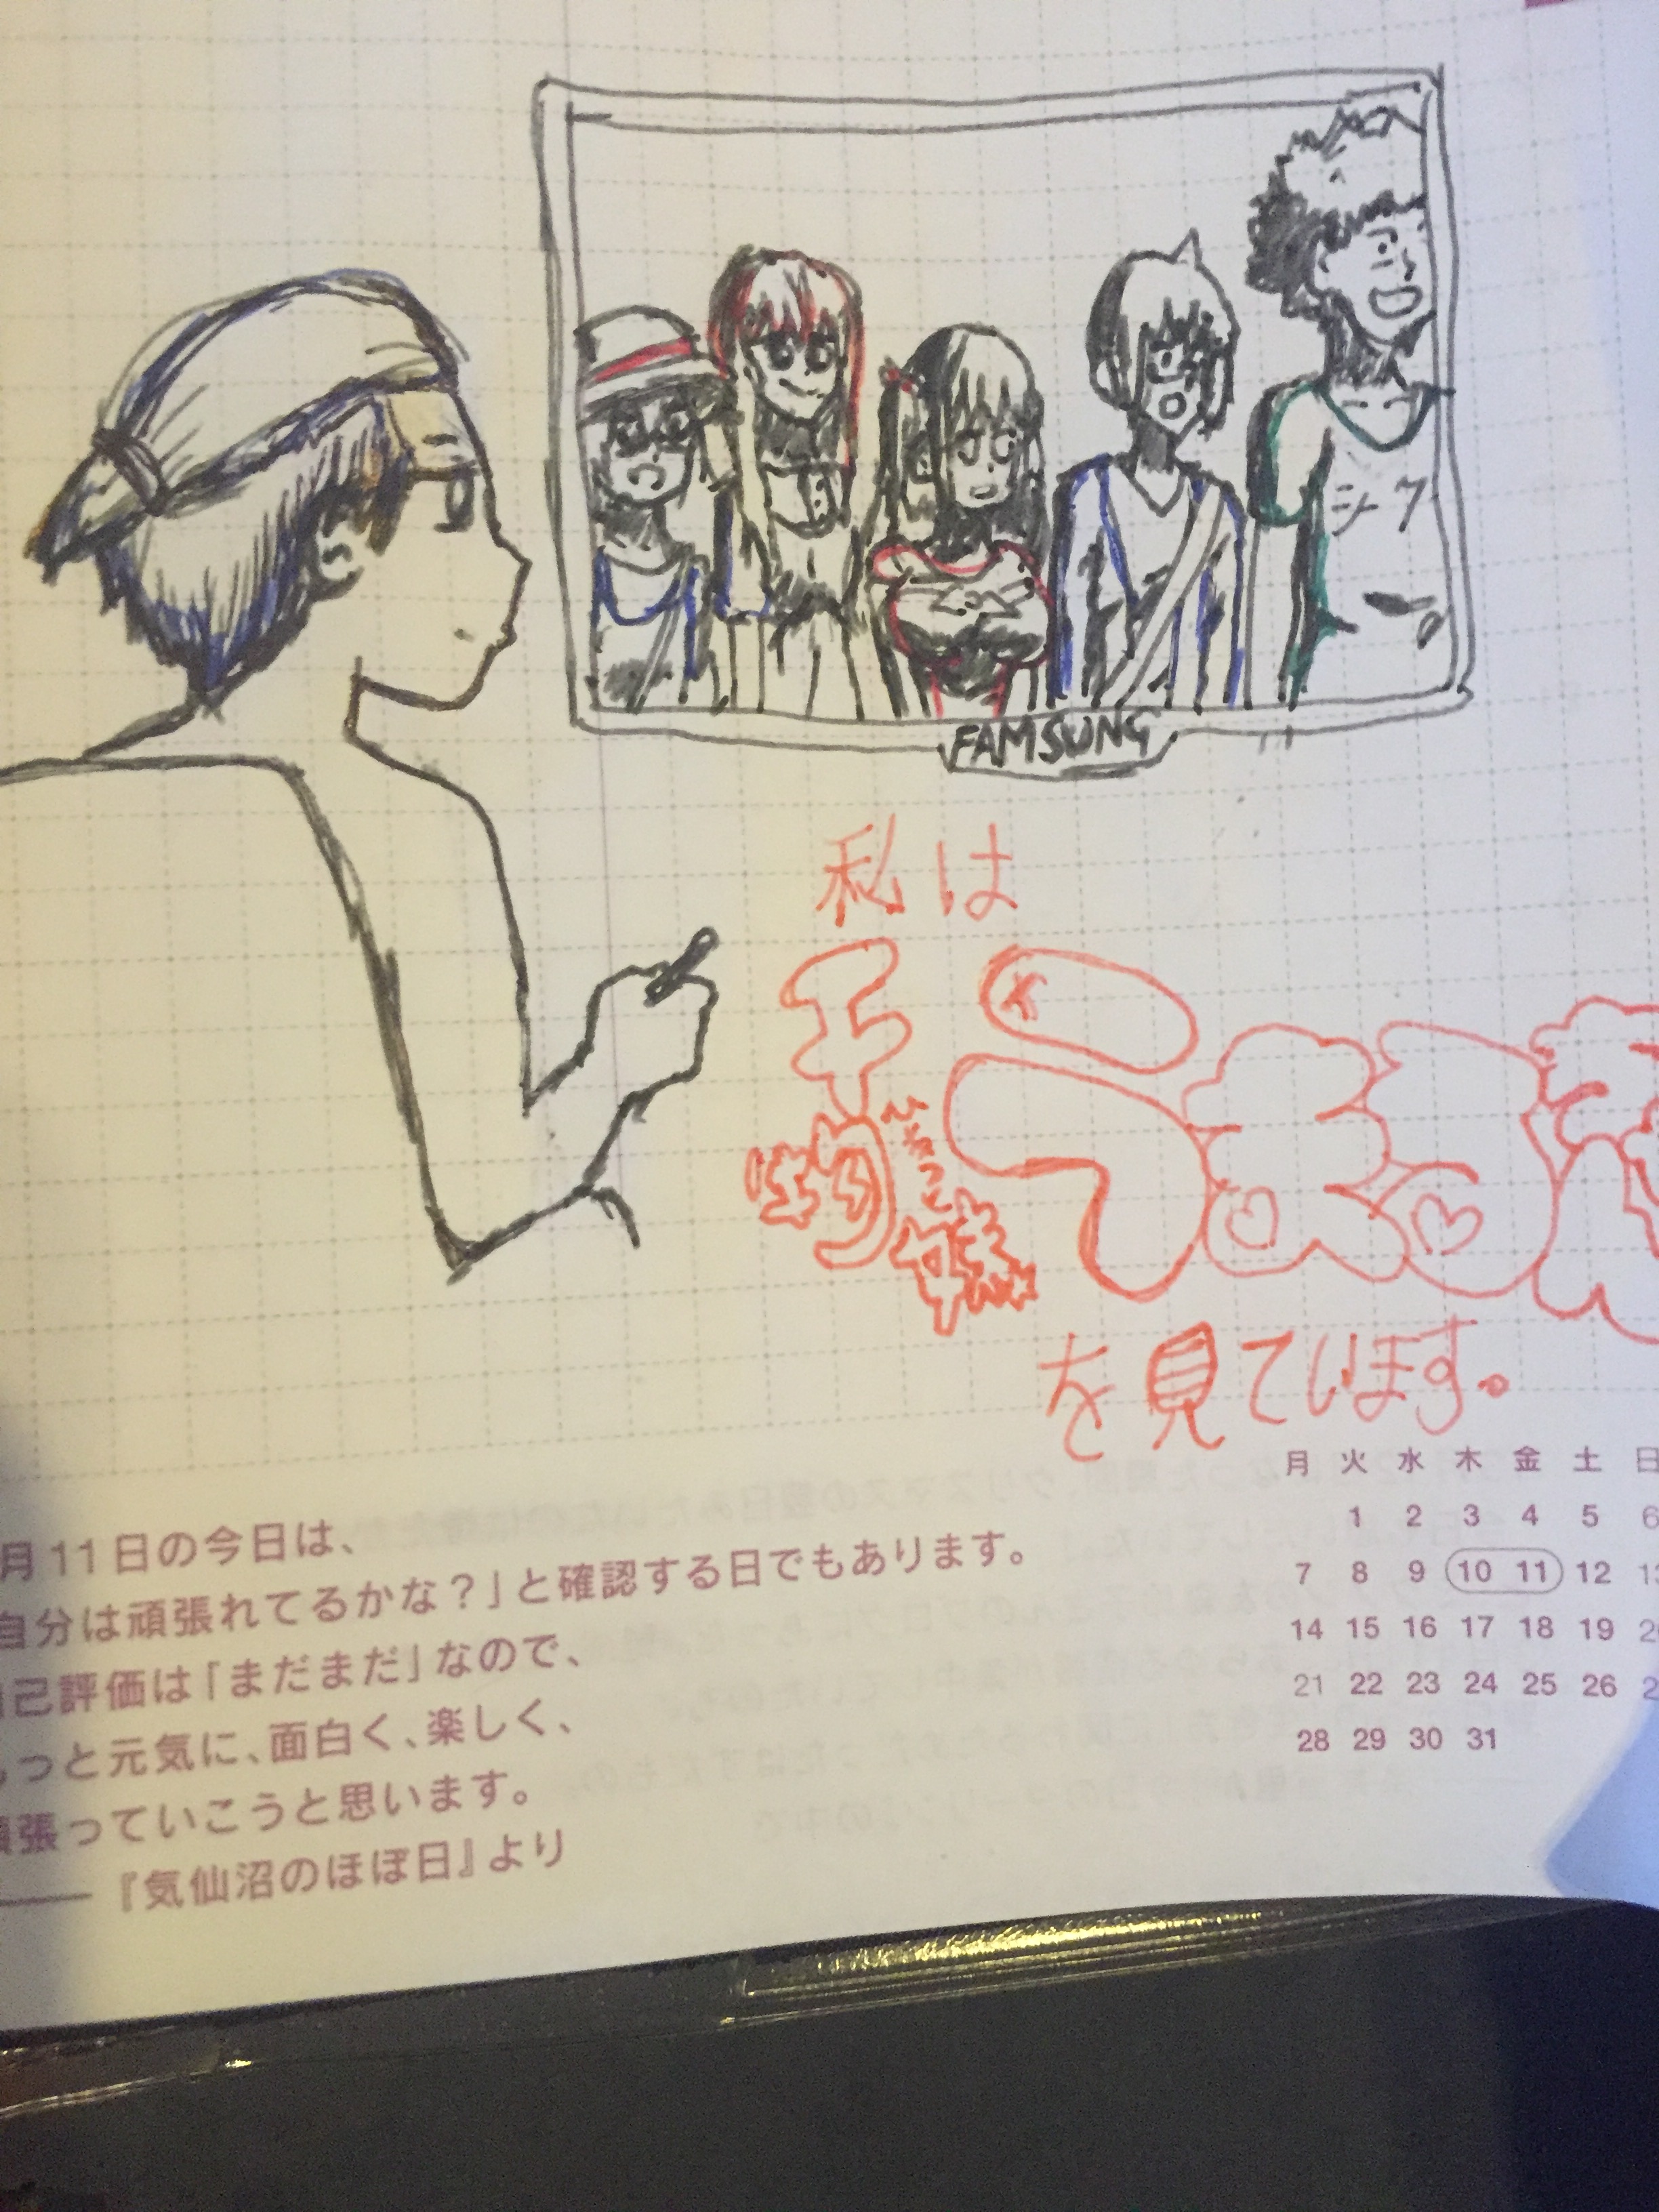 FAMSUNG
私は
を見ています。
月11日の今日は、
自分は頑張れてるかな？」と確認する日でもあります。
己評価は「まだまだ」なので、
っと元気に、面白く、楽しく、
張っていこうと思います。
――『気仙沼のほぼ日』より
月 火 水 木 金 土 日
1 2 3 4 5 6
7 8 9 10 11 12
14 15 16 17 18 19
21 22 23 24 25 26
28 29 30 31